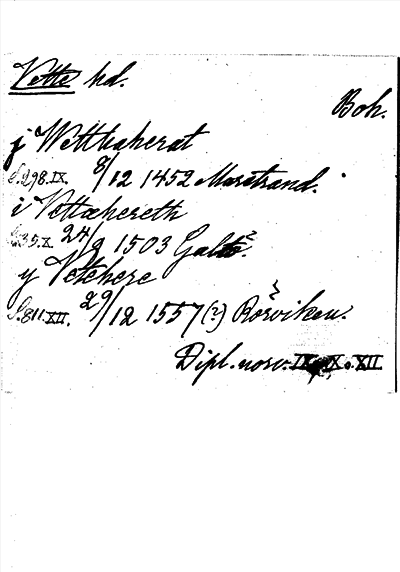 Vette hd.
Boh.
j Wetthaherat
S.298.IX. 8/12 1452 Marstrand.
i Vettæhereth
S.35.X. 24/9 1503
y Vettehere
S.811.XII. 29/12 1557 (?) Rörviken.
Dipl. norv. IX, X o. XII